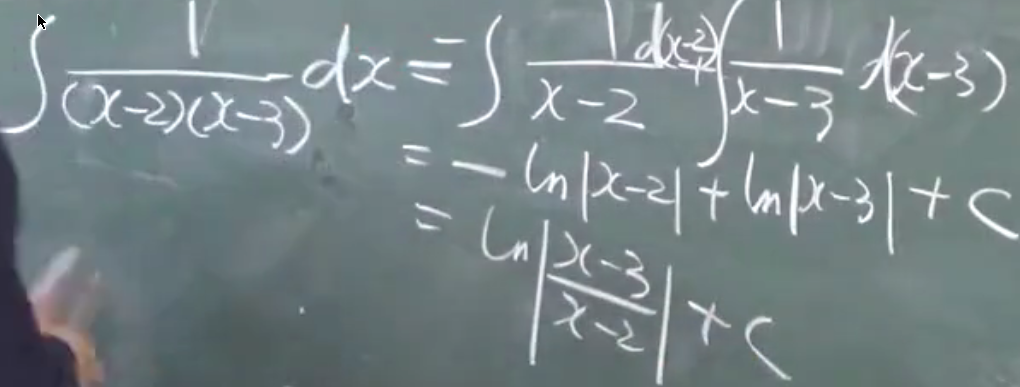 ∫ 1/((x-2)(x-3)) dx = -∫ 1/(x-2) d(x-2) + ∫ 1/(x-3) d(x-3)
= - ln|x-2| + ln|x-3| + C
= ln|(x-3)/(x-2)| + C